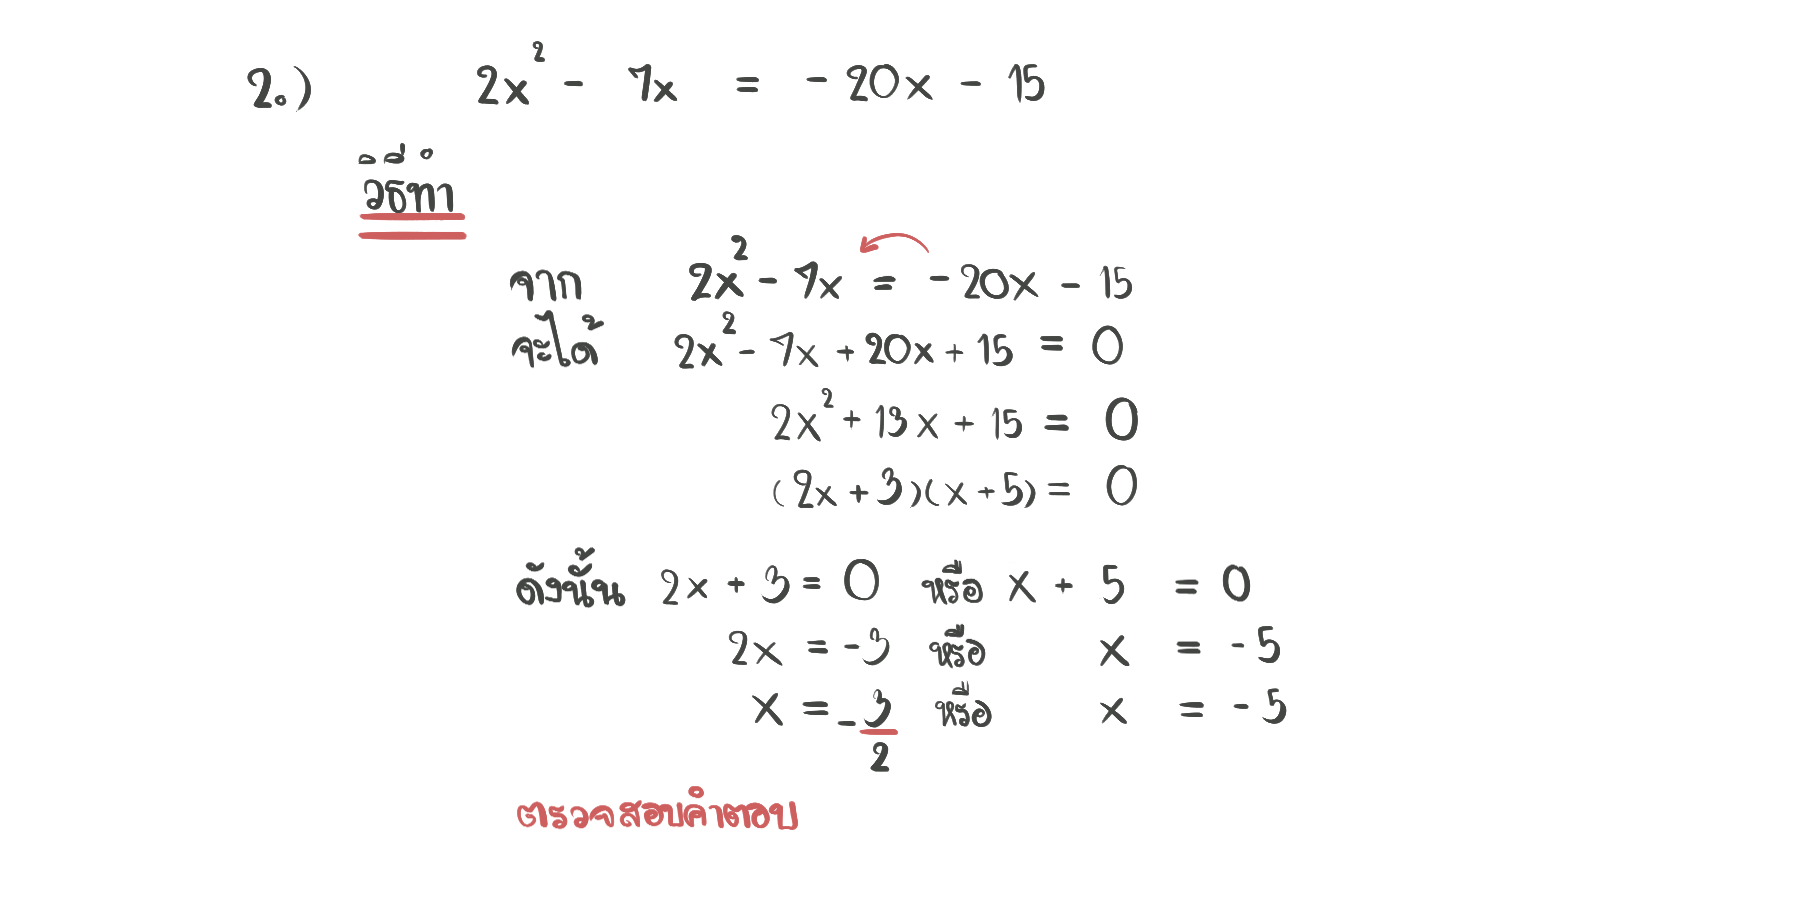 2.) 2x² - 7x = - 20x - 15
วิธีทำ
จาก 2x² - 7x = - 20x - 15
จะได้ 2x² - 7x + 20x + 15 = 0
2x² + 13x + 15 = 0
(2x + 3)(x + 5) = 0
ดังนั้น 2x + 3 = 0 หรือ x + 5 = 0
2x = -3 หรือ x = -5
x = -3/2 หรือ x = -5
ตรวจสอบคำตอบ